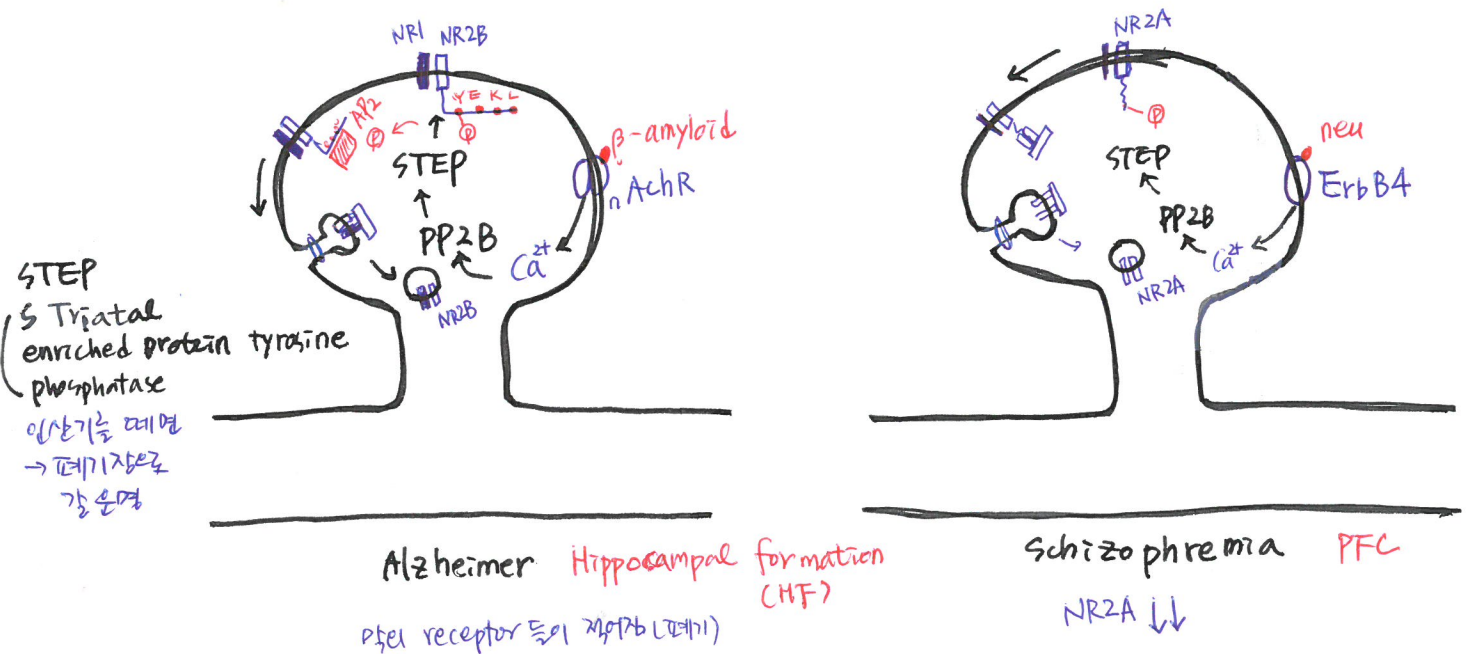 NR1 NR2B
Y E K L
AP2
P
P
STEP
β-amyloid
nAchR
PP2B
Ca2+
NR2B
STEP
STriatal
enriched protein tyrosine
phosphatase
인산기를 떼면
→ 폐기장으로
갈 운명
Alzheimer Hippocampal formation
(HF)
receptor 들이 적어짐 (폐기)
NR2A
P
STEP
neu
ErbB4
PP2B
Ca2+
NR2A
Schizophremia PFC
NR2A ↓↓